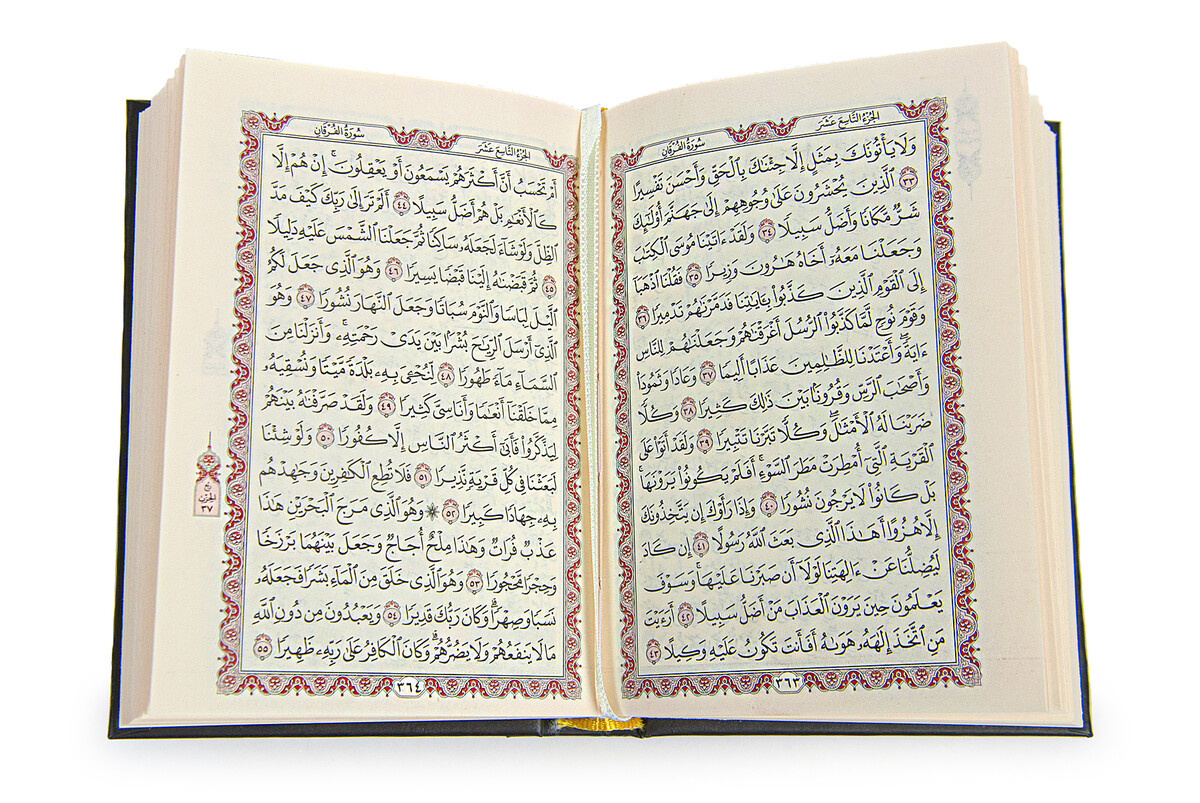 الجُزْءُ التَّاسِعَ عَشَرَ
سُورَةُ الفُرْقَانِ
وَلَا يَأْتُونَكَ بِمَثَلٍ إِلَّا جِئْنَٰكَ بِالْحَقِّ وَأَحْسَنَ تَفْسِيرًا
٣٣ اَلذِينَ يُحْشَرُونَ عَلَىٰ وُجُوهِهِمْ إِلَىٰ جَهَنَّمَ أُوْلَٰٓئِكَ
شَرٌّ مَّكَانًا وَأَضَلُّ سَبِيلًا ٣٤ وَلَقَدْ ءَاتَيْنَا مُوسَى اَلْكِتَٰبَ
وَجَعَلْنَا مَعَهُۥ أَخَاهُ هَٰرُونَ وَزِيرًا ٣٥ فَقُلْنَا اَذْهَبَا
إِلَى اَلْقَوْمِ اِلَّذِينَ كَذَّبُواْ بِـَٔايَٰتِنَا فَدَمَّرْنَٰهُمْ تَدْمِيرًا ٣٦
وَقَوْمَ نُوحٍ لَّمَّا كَذَّبُواْ اُلرُّسُلَ أَغْرَقْنَٰهُمْ وَجَعَلْنَٰهُمْ لِلنَّاسِ
ءَايَةً وَأَعْتَدْنَا لِلظَّٰلِمِينَ عَذَابًا أَلِيمًا ٣٧ وَعَادًا وَثَمُودًا
وَأَصْحَٰبَ اَلرَّسِّ وَقُرُونًۢا بَيْنَ ذَٰلِكَ كَثِيرًا ٣٨ وَكُلًّا
ضَرَبْنَا لَهُ اُلْأَمْثَٰلَ وَكُلًّا تَبَّرْنَا تَتْبِيرًا ٣٩ وَلَقَدْ أَتَوْاْ عَلَى
اَلْقَرْيَةِ اِلَّتِيٓ أُمْطِرَتْ مَطَرَ اَلسَّوْءِ أَفَلَمْ يَكُونُواْ يَرَوْنَهَا
بَلْ كَانُواْ لَا يَرْجُونَ نُشُورًا ٤٠ وَإِذَا رَأَوْكَ إِن يَتَّخِذُونَكَ
إِلَّا هُزُؤًا أَهَٰذَا اَلَّذِى بَعَثَ اَللَّهُ رَسُولًا ٤١ إِن كَادَ
لَيُضِلُّنَا عَنْ ءَالِهَتِنَا لَوْلَآ أَن صَبَرْنَا عَلَيْهَا وَسَوْفَ
يَعْلَمُونَ حِينَ يَرَوْنَ اَلْعَذَابَ مَنْ أَضَلُّ سَبِيلًا ٤٢ أَرَءَيْتَ
مَنِ اِتَّخَذَ إِلَٰهَهُۥ هَوَىٰهُ أَفَأَنتَ تَكُونُ عَلَيْهِ وَكِيلًا ٤٣
٣٦٣
الجُزْءُ التَّاسِعَ عَشَرَ
سُورَةُ الفُرْقَانِ
أَمْ تَحْسَبُ أَنَّ أَكْثَرَهُمْ يَسْمَعُونَ أَوْ يَعْقِلُونَ إِنْ هُمْ إِلَّا
كَالْأَنْعَٰمِ بَلْ هُمْ أَضَلُّ سَبِيلًا ٤٤ أَلَمْ تَرَ إِلَىٰ رَبِّكَ كَيْفَ مَدَّ
اَلظِّلَّ وَلَوْ شَآءَ لَجَعَلَهُۥ سَاكِنًا ثُمَّ جَعَلْنَا اَلشَّمْسَ عَلَيْهِ دَلِيلًا
٤٥ ثُمَّ قَبَضْنَٰهُ إِلَيْنَا قَبْضًا يَسِيرًا ٤٦ وَهُوَ اَلَّذِى جَعَلَ لَكُمُ
اُلَّيْلَ لِبَاسًا وَالنَّوْمَ سُبَاتًا وَجَعَلَ اَلنَّهَارَ نُشُورًا ٤٧ وَهُوَ
اَلَّذِىٓ أَرْسَلَ اَلرِّيَٰحَ نُشُرًۢا بَيْنَ يَدَىْ رَحْمَتِهِۦ وَأَنزَلْنَا مِنَ
اَلسَّمَآءِ مَآءً طَهُورًا ٤٨ لِّنُحْـِۧىَ بِهِۦ بَلْدَةً مَّيْتًا وَنُسْقِيَهُۥ
مِمَّا خَلَقْنَآ أَنْعَٰمًا وَأَنَاسِىَّ كَثِيرًا ٤٩ وَلَقَدْ صَرَّفْنَٰهُ بَيْنَهُمْ
لِيَذَّكَّرُواْ فَأَبَىٰٓ أَكْثَرُ اُلنَّاسِ إِلَّا كُفُورًا ٥٠ وَلَوْ شِئْنَا
لَبَعَثْنَا فِى كُلِّ قَرْيَةٍ نَّذِيرًا ٥١ فَلَا تُطِعِ اِلْكَٰفِرِينَ وَجَٰهِدْهُم
بِهِۦ جِهَادًا كَبِيرًا ٥٢ وَهُوَ اَلَّذِى مَرَجَ اَلْبَحْرَيْنِ هَٰذَا
عَذْبٌ فُرَاتٌ وَهَٰذَا مِلْحٌ أُجَاجٌ وَجَعَلَ بَيْنَهُمَا بَرْزَخًا
وَحِجْرًا مَّحْجُورًا ٥٣ وَهُوَ اَلَّذِى خَلَقَ مِنَ اَلْمَآءِ بَشَرًا فَجَعَلَهُۥ
نَسَبًا وَصِهْرًا وَكَانَ رَبُّكَ قَدِيرًا ٥٤ وَيَعْبُدُونَ مِن دُونِ اِللَّهِ
مَا لَا يَنفَعُهُمْ وَلَا يَضُرُّهُمْ وَكَانَ اَلْكَافِرُ عَلَىٰ رَبِّهِۦ ظَهِيرًا ٥٥
٣٦٤
الحِزْب
٣٧